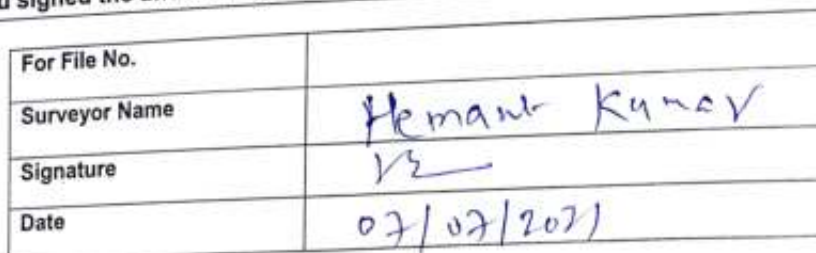 signed the
For File No.
Surveyor Name Hemant Kumar
Signature
Date 07/07/2021